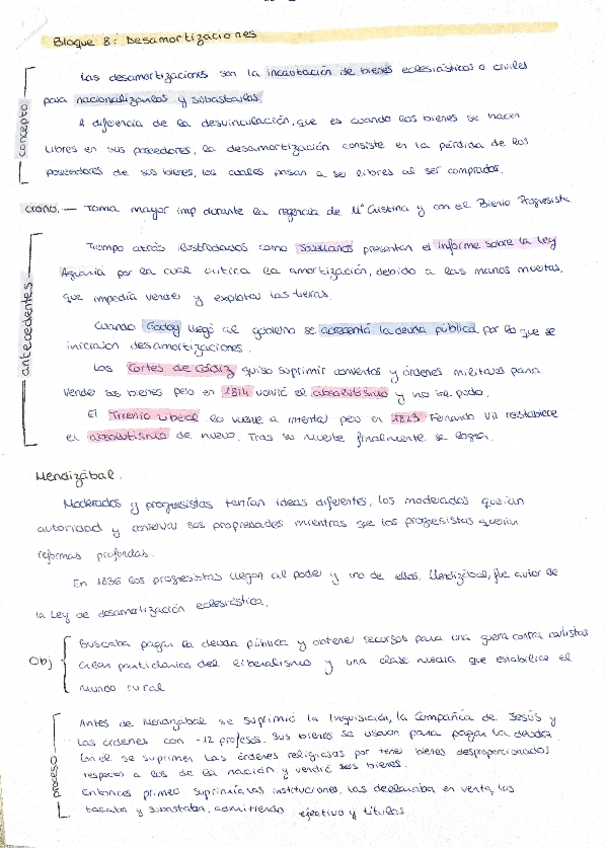 Bloque 8: Desamortizaciones
Las desamortizaciones son la incautación de bienes eclesiásticos o civiles
para nacionalizarlos y subastarlos.
A diferencia de la desvinculación, que es cuando los bienes se hacen
libres en sus poseedores, la desamortización consiste en la pérdida de los
poseedores de sus bienes, los cuales pasan a ser libres al ser comprados.
concepto
crono. — Toma mayor imp durante la regencia de Mª Cristina y con el Bienio Progresista
Tiempo atrás ilustrados como Jovellanos presentan el Informe sobre la Ley
Agraria por la cual critica la amortización, debido a las manos muertas,
que impedía vender y explotar las tierras.
Cuando Godoy llegó al gobierno se acrecentó la deuda pública por lo que se
iniciaron desamortizaciones.
Las Cortes de Cádiz quiso suprimir conventos y órdenes militares para
vender sus bienes pero en 1814 volvió el absolutismo y no se pudo.
El Trienio Liberal lo vuelve a intentar pero en 1823 Fernando VII restablece
el absolutismo de nuevo. Tras su muerte finalmente se logra.
antecedentes
Mendizábal.
Moderados y progresistas tenían ideas diferentes, los moderados querían
autoridad y conservar sus propiedades mientras que los progresistas querían
reformas profundas.
En 1836 los progresistas llegan al poder y uno de ellos, Mendizábal, fue autor de
la Ley de desamortización eclesiástica.
Obj
Buscaba pagar la deuda pública y obtener recursos para una guerra contra carlistas
crear partidarios del liberalismo y una clase media que estabilice el
mundo rural
proceso
Antes de Mendizábal se suprimió la Inquisición, la Compañía de Jesús y
las órdenes con -12 profesos. Sus bienes se usaron para pagar la deuda.
Con el se suprimen las órdenes religiosas por tener bienes desproporcionados
respecto a los de la nación y vendió sus bienes.
Entonces primero suprimía las instituciones, las declaraba en venta, las
tasaba y subastaban, admitiendo efectivo y títulos.